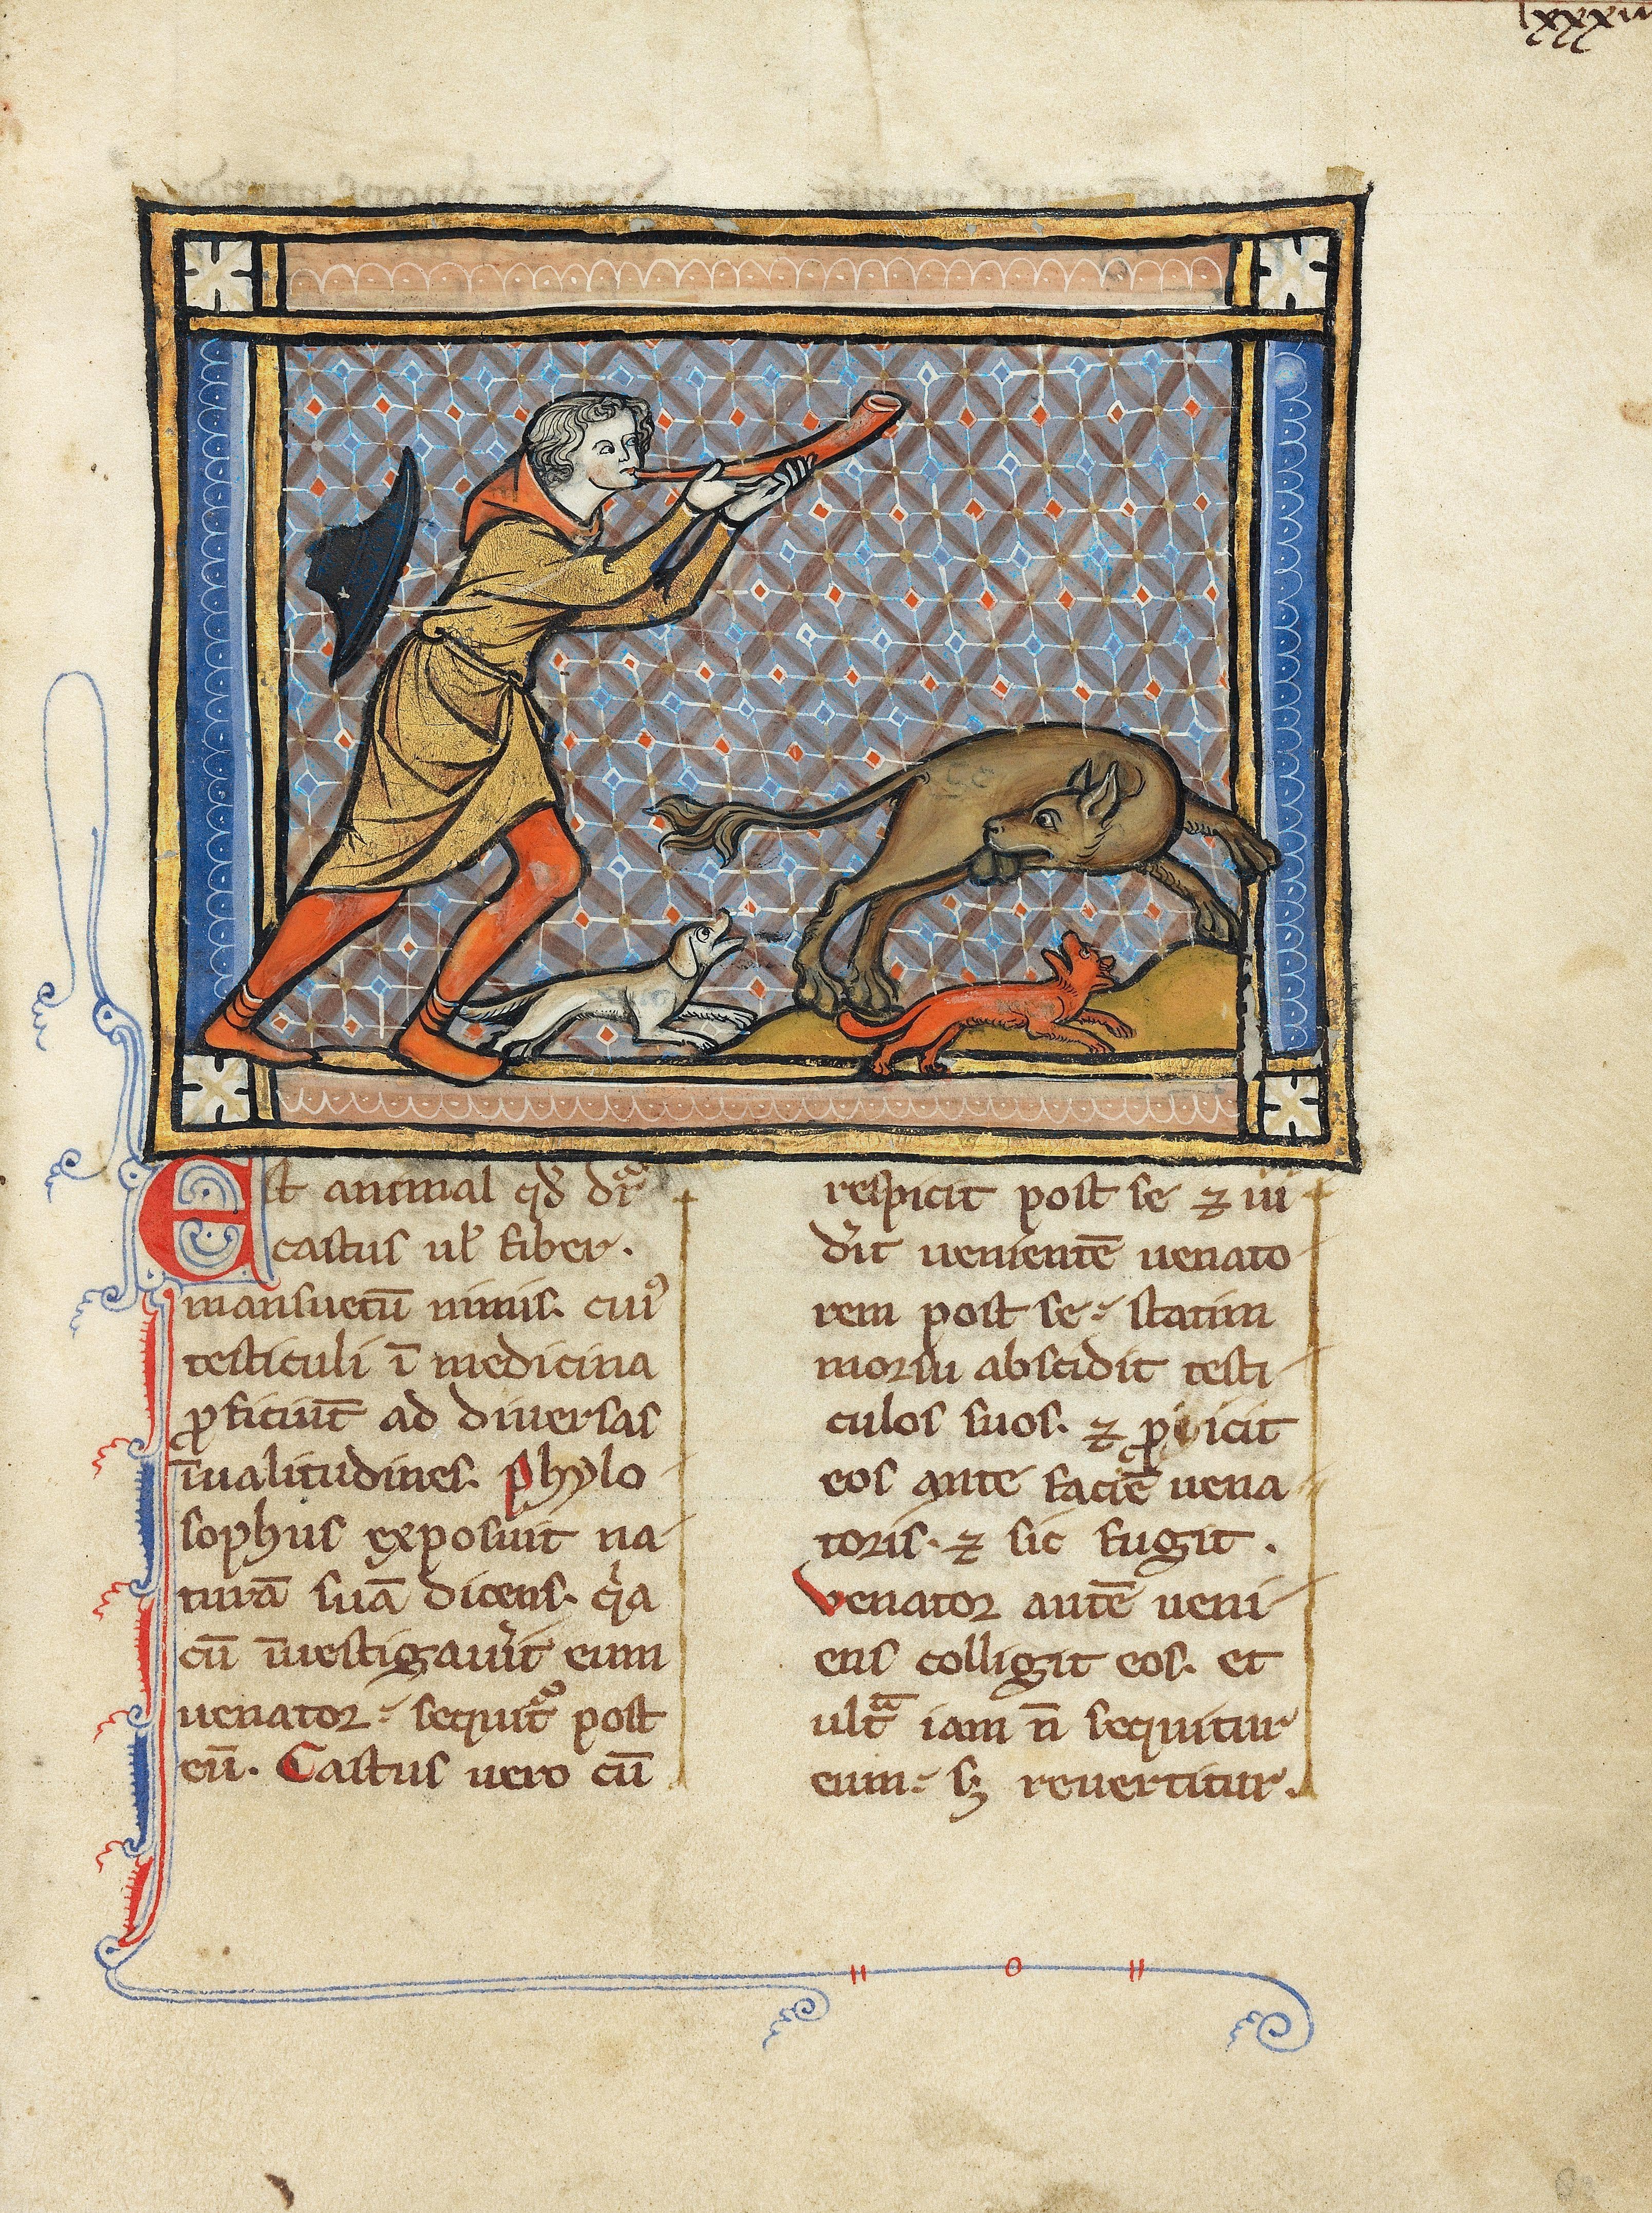 lxxxiii
Est animal qd̄ dr̄ᵃ
castus ul̓ fiber.
mansuetū nimis. cuiꝰ
testiculi ī medicina
ꝓficiūt ad diuersas
īualitudines. Phylo
sophus exposuit na-
turā suā dicens. qͥa
cū īuestigauit eum
uenator sequit̄ᵃ post
eū. Castus uero cū
respicit post se ⁊ ui
d̓it uenientē uenato
rem post se statim
morsu abscidit testi
culos suos. ⁊ ꝓicit
eos ante faciē uena
toris. ⁊ sic fugit.
Venator autē ueni
ens colligit eos. et
ult̄ᵃ iam n̄ sequitur
eum sꝫ reuertitur.